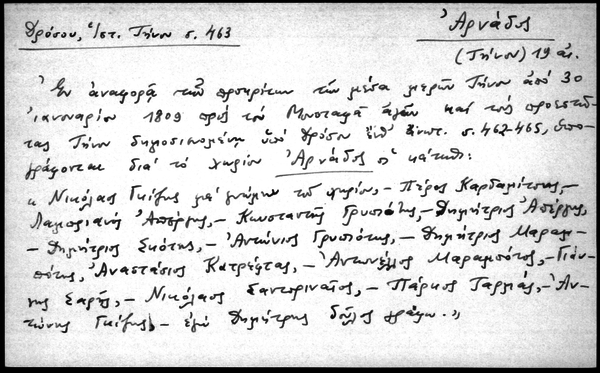 Δρόσου, Ἱστ. Τήνου σ. 463
Ἀρνάδος
(Τήνου) 19 αἰ.
Ἐν ἀναφορᾷ τῶν προκρίτων τῶν μέσα μερῶν Τήνου ἀπὸ 30
ἰανουαρίου 1809 πρὸς τὸν Μουσταφᾶ ἀγᾶν καὶ τοὺς προεστῶ-
τας Τήνου δημοσιευομένῃ ὑπὸ Δρόσου ἔνθ' ἀνωτ. σ. 462-465, ὑπο-
γράφονται διὰ τὸ χωρίον Ἀρνάδος οἱ κάτωθι:
« Νικόλαος Γκίζης μὲ γνώμην τοῦ χωρίου, – Πέτρος Καρδαμίτσης, –
Ἀπέργης, – Κωνσταντῆς Γρυπάρης, – Δημήτριος Ἀπέργης,
– Δημήτριος Σκότης, – Ἀντώνιος Γρυπάρης, – Δημήτριος Μαραμ-
πότης, Ἀναστάσιος Κατρέφτας, – Ἀντωνέλλος Μαραμπότος, – Γιάν-
νης Σαρῆς, – Νικόλαος Σαντοριναῖος, – Μάρκος – Ἀν-
τώνης Γκίζης – ἐγὼ Δημήτρης δοῦλος γράφω. »